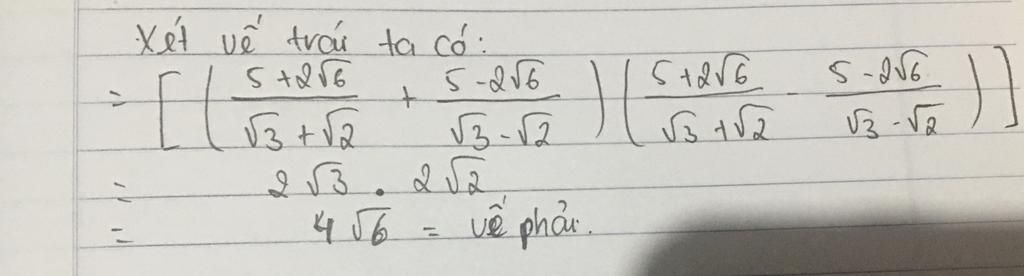 Xét vế trái ta có:
= [ ( (5 + 2√6)/(√3 + √2) + (5 - 2√6)/(√3 - √2) ) ( (5 + 2√6)/(√3 + √2) - (5 - 2√6)/(√3 - √2) ) ]
= 2√3 . 2√2
= 4√6 = vế phải.